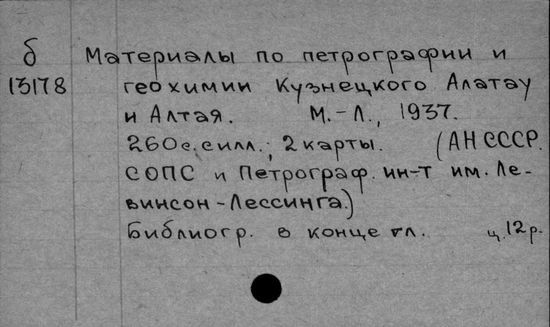 б Материалы по петрографии и
13178 геохимии Кузнецкого Алатау
и Алтая. М.-Л., 1937.
260с. с илл.; 2 карты. (АН СССР.
СОПС и Петрограф. ин-т им. Ле-
винсон-Лессинга.)
Библиогр. в конце гл. ц. 12 р.